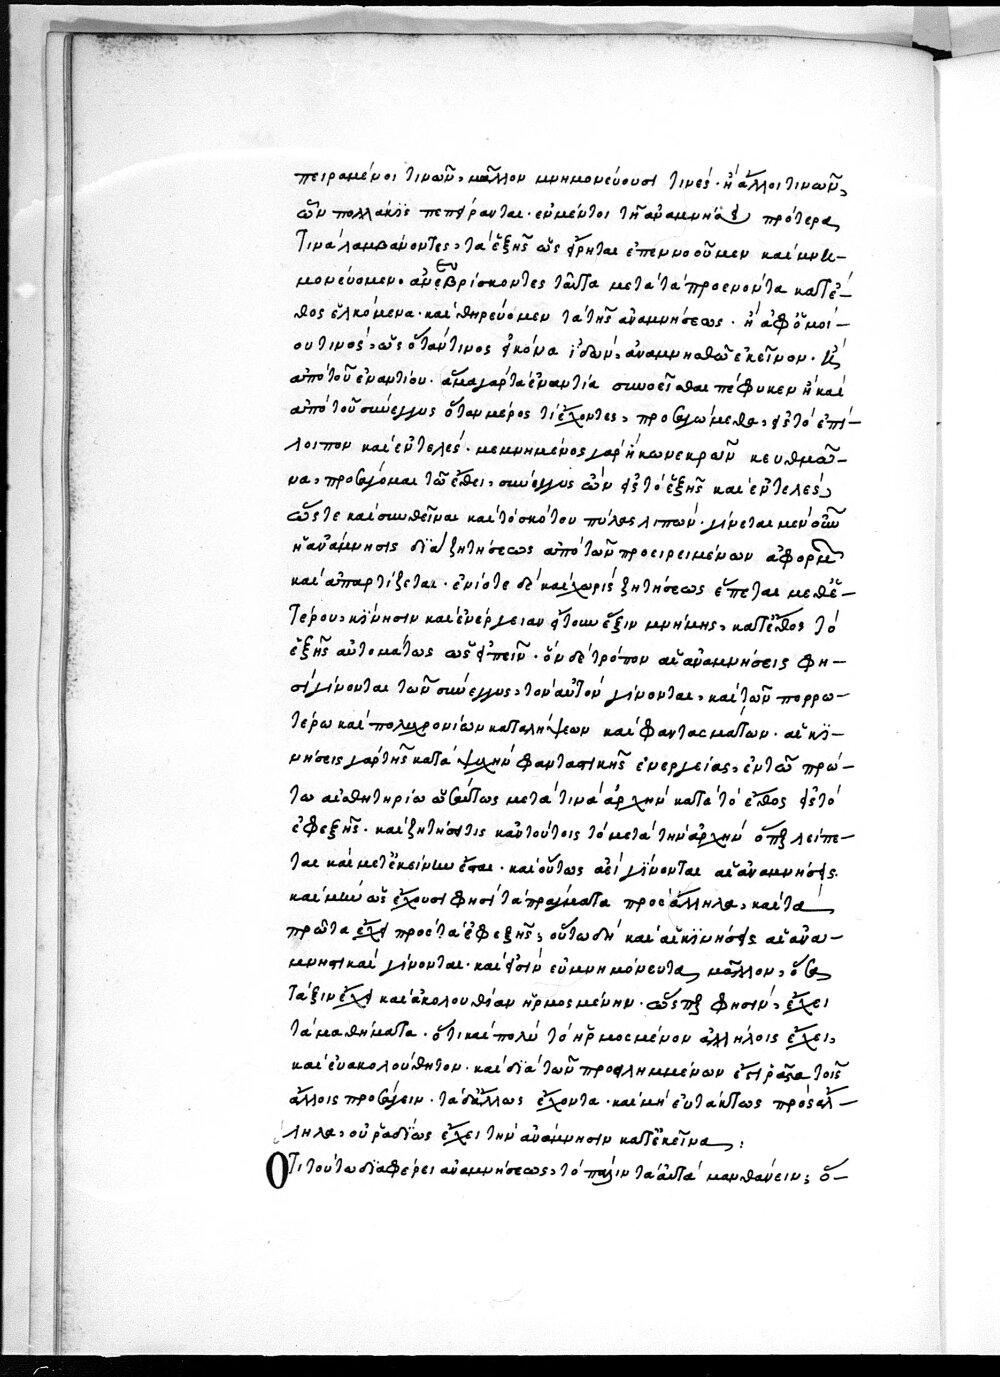 πειραμένοι τινῶν, μᾶλλον μνημονεύουσί τινες· ἢ ἄλλοι τινῶν,
ὧν πολλάκις πεπείρανται· εὖ μέντοι τῇ ἀναμνήσει πρότερα
τινὰ λαμβάνοντες, τὰ ἑξῆς ὡς εἴρηται ἐπεννοοῦμεν καὶ μνη-
μονεύομεν· ἀνευρίσκοντες ταῦτα μετὰ τὰ προενόντα κατ' ἔ-
θος ἑλκόμενα· καὶ θηρεύομεν τὰ τῆς ἀναμνήσεως· ἢ ἀφ' ὁμοί-
ου τινός, ὡς ὅταν τινος εἰκόνα ἰδὼν, ἀναμνησθῶ ἐκεῖνον· ἢ
ἀπὸ τοῦ ἐναντίου· ἅμα γὰρ τὰ ἐναντία συννοεῖσθαι πέφυκεν ἢ καὶ
ἀπὸ τοῦ σύνεγγυς ὅταν μέρος τι ἔχοντες, προσαγώμεθα, εἰς τὸ ἐπί-
λοιπον καὶ ἐντελές· μεμνημένος γὰρ ἥκω νεκρῶν κευθμῶ-
να, προσάγομαι τῷ ἔθει, σύνεγγυς ὢν εἰς τὸ ἑξῆς καὶ ἐντελές,
ὥστε καὶ συνθεῖναι καὶ τὸ σκότου πύλας λιπών· γίνεται μὲν οὖν
ἡ ἀνάμνησις διὰ ζητήσεως ἀπὸ τῶν προειρημένων ἀφορμῶν
καὶ ἀπαρτίζεται· ἐνίοτε δὲ καὶ χωρὶς ζητήσεως ἕπεται μεθ' ἑ-
τέρου, κίνησιν καὶ ἐνέργειαν ἤτουν ἕξιν μνήμης, κατ' ἔθος τὸ
ἑξῆς αὐτομάτως ὡς εἰπεῖν· ὃν δὲ τρόπον αἱ ἀναμνήσεις φη-
σὶ γίνονται τῶν σύνεγγυς, τὸν αὐτὸν γίνονται, καὶ τῶν πορρω-
τέρω καὶ πολυχρονίων καταλήψεων καὶ φαντασμάτων· αἱ κι-
νήσεις γὰρ τῆς κατὰ ψυχὴν φανταστικῆς ἐνεργείας, ἐν τῷ πρώ-
τῳ αἰσθητηρίῳ ὡσαύτως μετὰ τινὰ ἀρχὴν κατὰ τὸ ἔθος εἰς τὸ
ἐφεξῆς· καὶ ζητήσει τις κἀν τούτοις τὸ μετὰ τὴν ἀρχὴν ὅπερ λείπε-
ται καὶ μετ' ἐκείνην ἔσται· καὶ οὕτως ἀεὶ γίνονται αἱ ἀναμνήσεις·
καὶ μὴν ὡς ἔχουσι φησὶ τὰ πράγματα πρὸς ἄλληλα, κατὰ
πρῶτα ἔχει πρὸς τὰ ἐφεξῆς, οὕτω δὴ καὶ αἱ κινήσεις αἱ ἀνα-
μνηστικαὶ γίνονται· καὶ εἰσὶν εὐμνημόνευτα μᾶλλον, ὅσα
τάξιν ἔχει καὶ ἀκολουθίαν ἡρμοσμένην· ὥσπερ φησὶν, ἔχει
τὰ μαθήματα· ὅτι καὶ πολὺ τὸ ἡρμοσμένον ἀλλήλοις ἔχει,
καὶ εὐακολούθητον· καὶ διὰ τῶν προειλημμένων ἔστι ῥᾷστα τοῖς
ἄλλοις προσάγειν· τὰ δ' ἄλλως ἔχοντα· καὶ μὴ εὐτάκτως πρὸς ἄλ-
ληλα, οὐ ῥᾳδίως ἔχει τὴν ἀνάμνησιν κατ' ἐκεῖνα:
Ὅτι τούτῳ διαφέρει ἀναμνήσεως, τὸ πάλιν τὰ αὐτὰ μανθάνειν, ὅ-